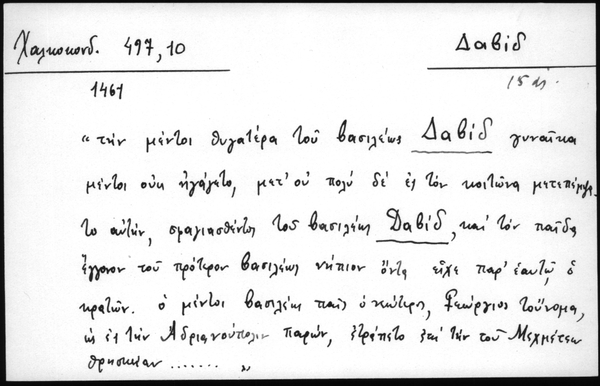 Χαλκοκονδ. 497,10
Δαβίδ
1461
15 αἰ.
" τὴν μέντοι θυγατέρα τοῦ βασιλέως Δαβὶδ γυναῖκα
μέντοι οὐκ ἠγάγετο, μετ' οὐ πολὺ δὲ ἐς τὸν κοιτῶνα μετεπέμψα-
το αὐτήν, σφαγιασθέντος τοῦ βασιλέως Δαβίδ, καὶ τὸν παῖδα
ἔγγονον τοῦ πρότερον βασιλέως νήπιον ὄντα εἶχε παρ' ἑαυτῷ ὁ
κρατῶν. ὁ μέντοι βασιλέως παῖς ὁ νεώτερος, Γεώργιος τοὔνομα,
ὡς ἐς τὴν Ἀδριανούπολιν παρῆν, ἐτράπετο ἐπὶ τὴν τοῦ Μεχμέτεω
θρησκείαν ....... "